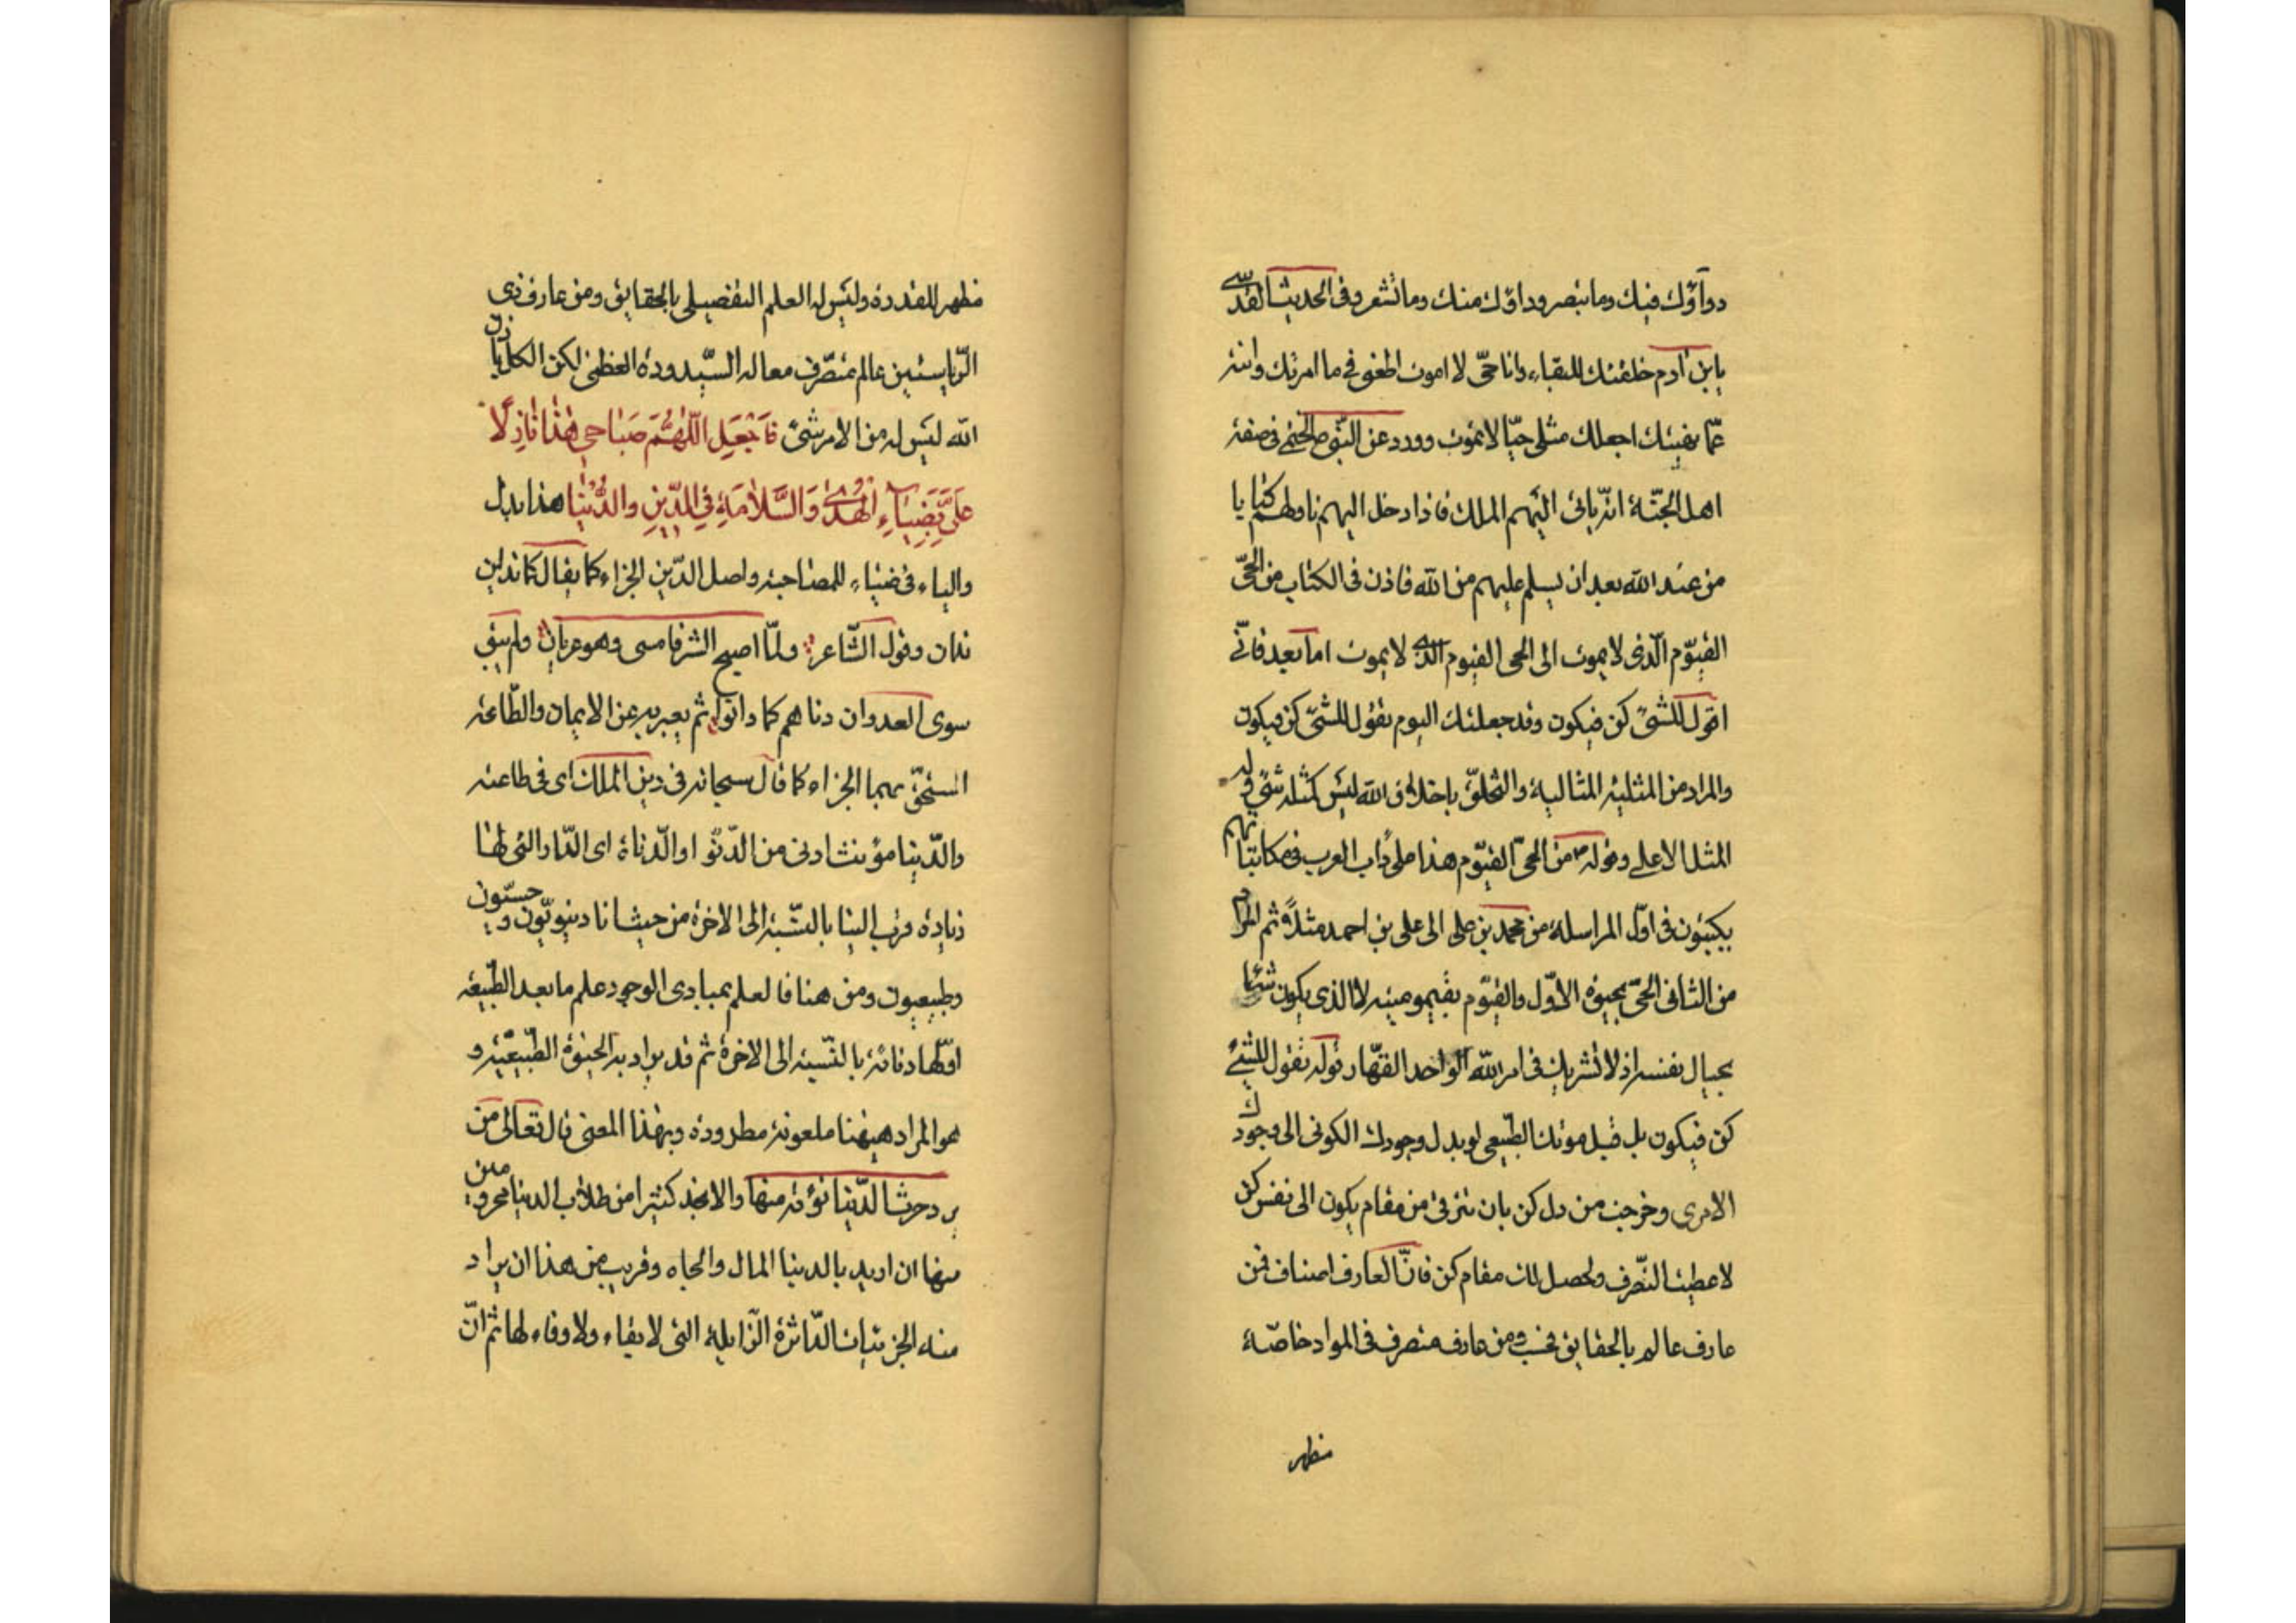 دواؤك فيك وما تبصر وداؤك منك وما تشعر وفى الحديث القدسى
يابن ادم خلقتك للبقاء وانا حىّ لا اموت اطعنى فى ما امرتك وانته
عمّا نهيتك اجعلك مثلى حيّا لا تموت وورد عن النبى ص الختمى فى صفة
اهل الجنّة انه ياتى اليهم الملك فاذا دخل اليهم ناولهم كتابا
من عند الله بعد ان يسلم عليهم من الله فاذن فى الكتاب من الحىّ
القيّوم الّذى لا يموت الى الحى القيوم الذى لا يموت اما بعد فانّى
اقول للشىء كن فيكون وقد جعلتك اليوم تقول للشىء كن فيكون
والمراد من المثلية المثالية والتخلّق باخلاق الله ليس كمثله شىء وله
المثل الاعلى وقوله من الحىّ القيّوم هذا على داب العرب فى مكاتباتهم
يكتبون فى اوّل المراسلة من محمد بن على الى على بن احمد مثلاً ثم المراد
من الثانى الحىّ بحيوة الاوّل والقيّوم بقيّوميته لا الذى يكون شيئا
بحيال نفسه اذ لا تشريك فى امر الله الواحد القهّار قوله تقول للشىء
كن فيكون بل قبل موتك الطّبيعى لو بدل وجودك الكونى الى وجودك
الامرى وخرجت من دل كن بان تترقى من مقام يكون الى نفس كن
لاعطيت التّصرف ولحصل لك مقام كن فانّ العارف اصناف فمن
عارف عالم بالحقايق فحسب ومن عارف متصرف فى المواد خاصّة
مظهر
مظهر للقدرة وليس له العلم التفصيلى بالحقايق ومن عارف ذى
الرّياستين عالم متصّرف معا له السّيدودة العظمى لكن الكل باذن
الله ليس له من الامر شىء فَاجْعَلِ اللّهُمَّ صَبَاحِى هٰذَا نَازِلًا
عَلَىَّ بِضِيَاءِ الْهُدىٰ وَالسَّلَامَةِ فِى الدّينِ والدُّنْيَا هذا بدل
والباء فى ضياء للمصاحبة واصل الدّين الجزاء كما يقال كما تدين
تدان وقول الشّاعر ولمّا اصبح الشر فامسى وهو عريان ولم يبق
سوى العدوان دناهم كما دانوا ثم يعبر به عن الايمان والطّاعة
المستحقّ بهما الجزاء كما قال سبحانه فى دين الملك اى فى طاعته
والدّنيا مؤنث ادنى من الدّنوّ او الدّناءة اى الدّار الّتى لها
زيادة قرب الينا بالنّسبة الى الاخرة من حيث انا دنيويّون وحسّيون
وطبيعيون ومن هنا فالعلم بمبادى الوجود علم ما بعد الطّبيعة
او لها دنائة بالنّسبة الى الاخرة ثم قد يراد به الحيوة الطّبيعيّة و
هو المراد هيهنا ملعونة مطرودة وبهذا المعنى قال تعالى من
يرد حرث الدّنيا نؤته منها والا نجد كثيرا من طلاب الدنيا محرومين
منها ان اريد بالدنيا المال والجاه وقريب من هذا ان يراد
منه الجزئيات الدّاثرة الزّايلة التى لا بقاء ولا وفاء لها ثم انّ